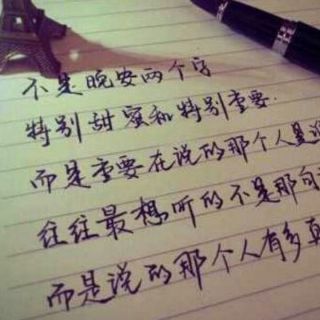 不是晚安两个字
特别甜蜜和特别重要.
而是重要在说的那个人是
往往最想听的不是那句
而是说的那个人有多真